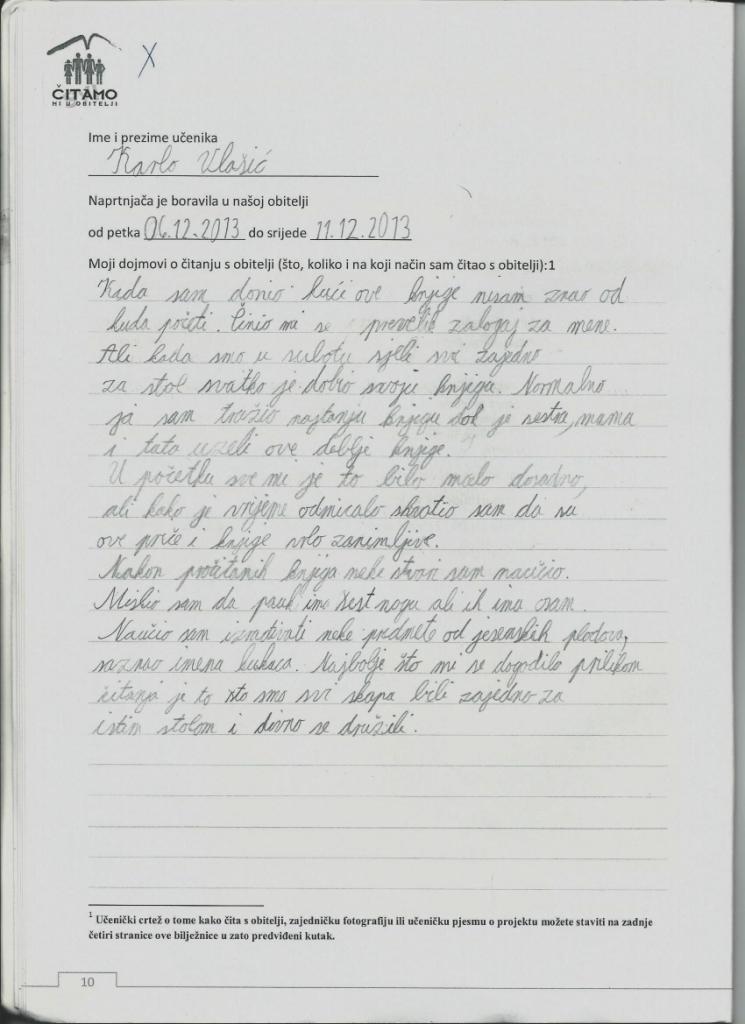 ČITAMO
MI U OBITELJI
X
Ime i prezime učenika
Karlo Vlašić
Naprtnjača je boravila u našoj obitelji
od petka 06.12.2013 do srijede 11.12.2013
Moji dojmovi o čitanju s obitelji (što, koliko i na koji način sam čitao s obitelji):1
Kada sam donio kući ove knjige nisam znao od
kuda početi. Činio mi se prevelik zalogaj za mene.
Ali kada smo u subotu sjeli svi zajedno
za stol svatko je dobio svoju knjigu. Normalno
ja sam tražio najtanju knjigu dok je sestra, mama
i tata uzeli ove deblje knjige.
U početku sve mi je to bilo malo dosadno,
ali kako je vrijeme odmicalo shvatio sam da su
ove priče i knjige vrlo zanimljive.
Nakon pročitanih knjiga neke stvari sam naučio.
Mislio sam da pauk ima šest nogu ali ih ima osam.
Naučio sam izrađivati neke predmete od jesenskih plodova,
saznao imena kukaca. Najbolje što mi se dogodilo prilikom
čitanja je to što smo svi skupa bili zajedno za
istim stolom i divno se družili.
1 Učenički crtež o tome kako čita s obitelji, zajedničku fotografiju ili učeničku pjesmu o projektu možete staviti na zadnje
četiri stranice ove bilježnice u zato predviđeni kutak.
10